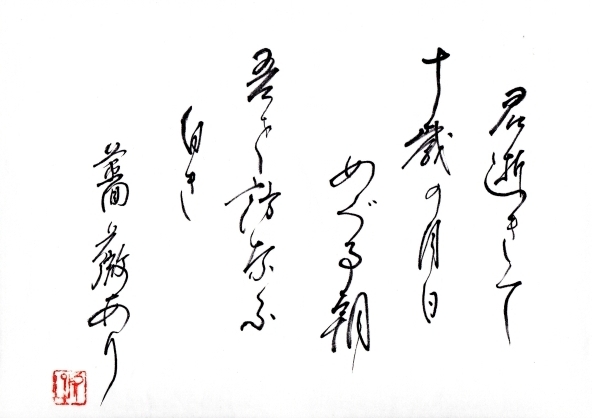 君逝きて
十歳の月日
めぐる朝
吾を訪なふ
白き
薔薇あり